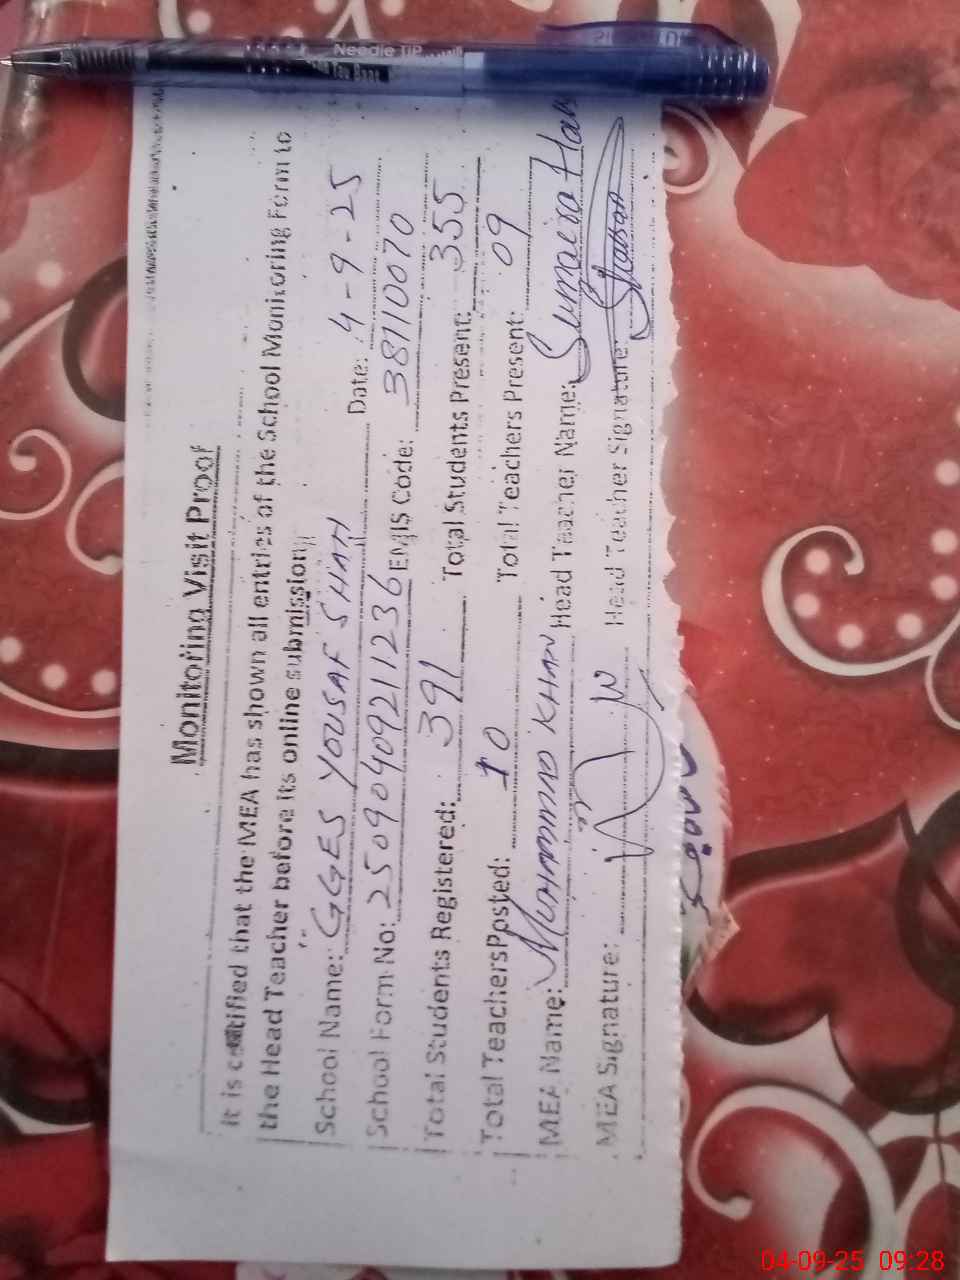 Needle TIP
Monitoring Visit Proof
It is certified that the MEA has shown all entries of the School Monitoring Form to
the Head Teacher before its online submission.
School Name: GGES YOUSAF SHAH Date: 4-9-25
School Form No: 25090409211236 EMIS Code: 38110070
Total Students Registered: 391 Total Students Present: 355
Total Teachers Posted: 10 Total Teachers Present: 09
MEA Name: MUHAMMAD KHAN Head Teacher Name: Sumaira
MEA Signature: Head Teacher Signature:
04-09-25 09:28